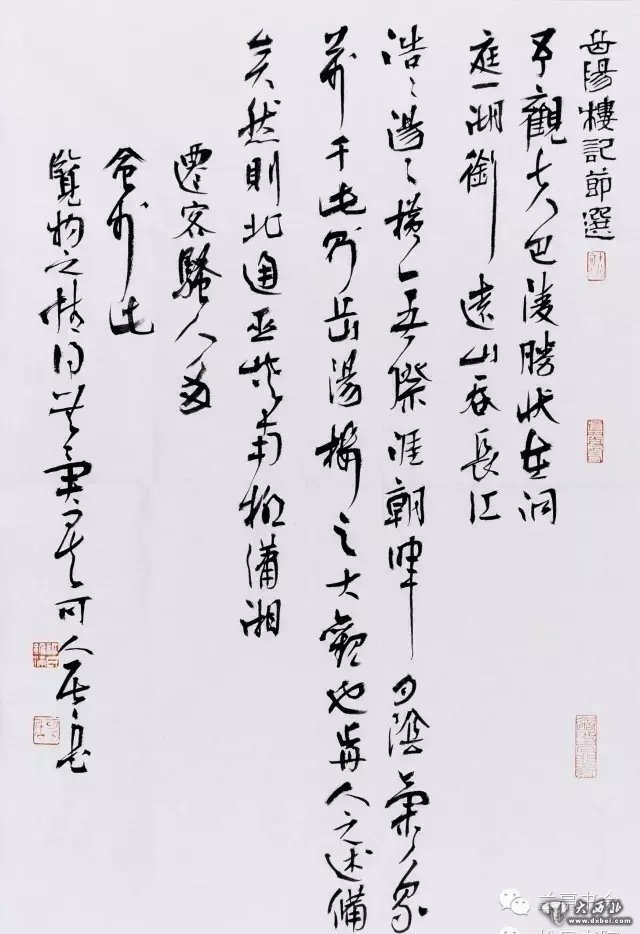 岳陽樓記節選
予觀夫巴陵勝狀在洞
庭一湖銜遠山吞長江
浩〻湯〻橫無際涯朝暉夕陰氣象
萬千此則岳陽樓之大觀也前人之述備
矣然則北通巫峽南極瀟湘
遷客騷人多
會於此
覽物之情得無異乎
可人居
大西北
www.dxbei.com